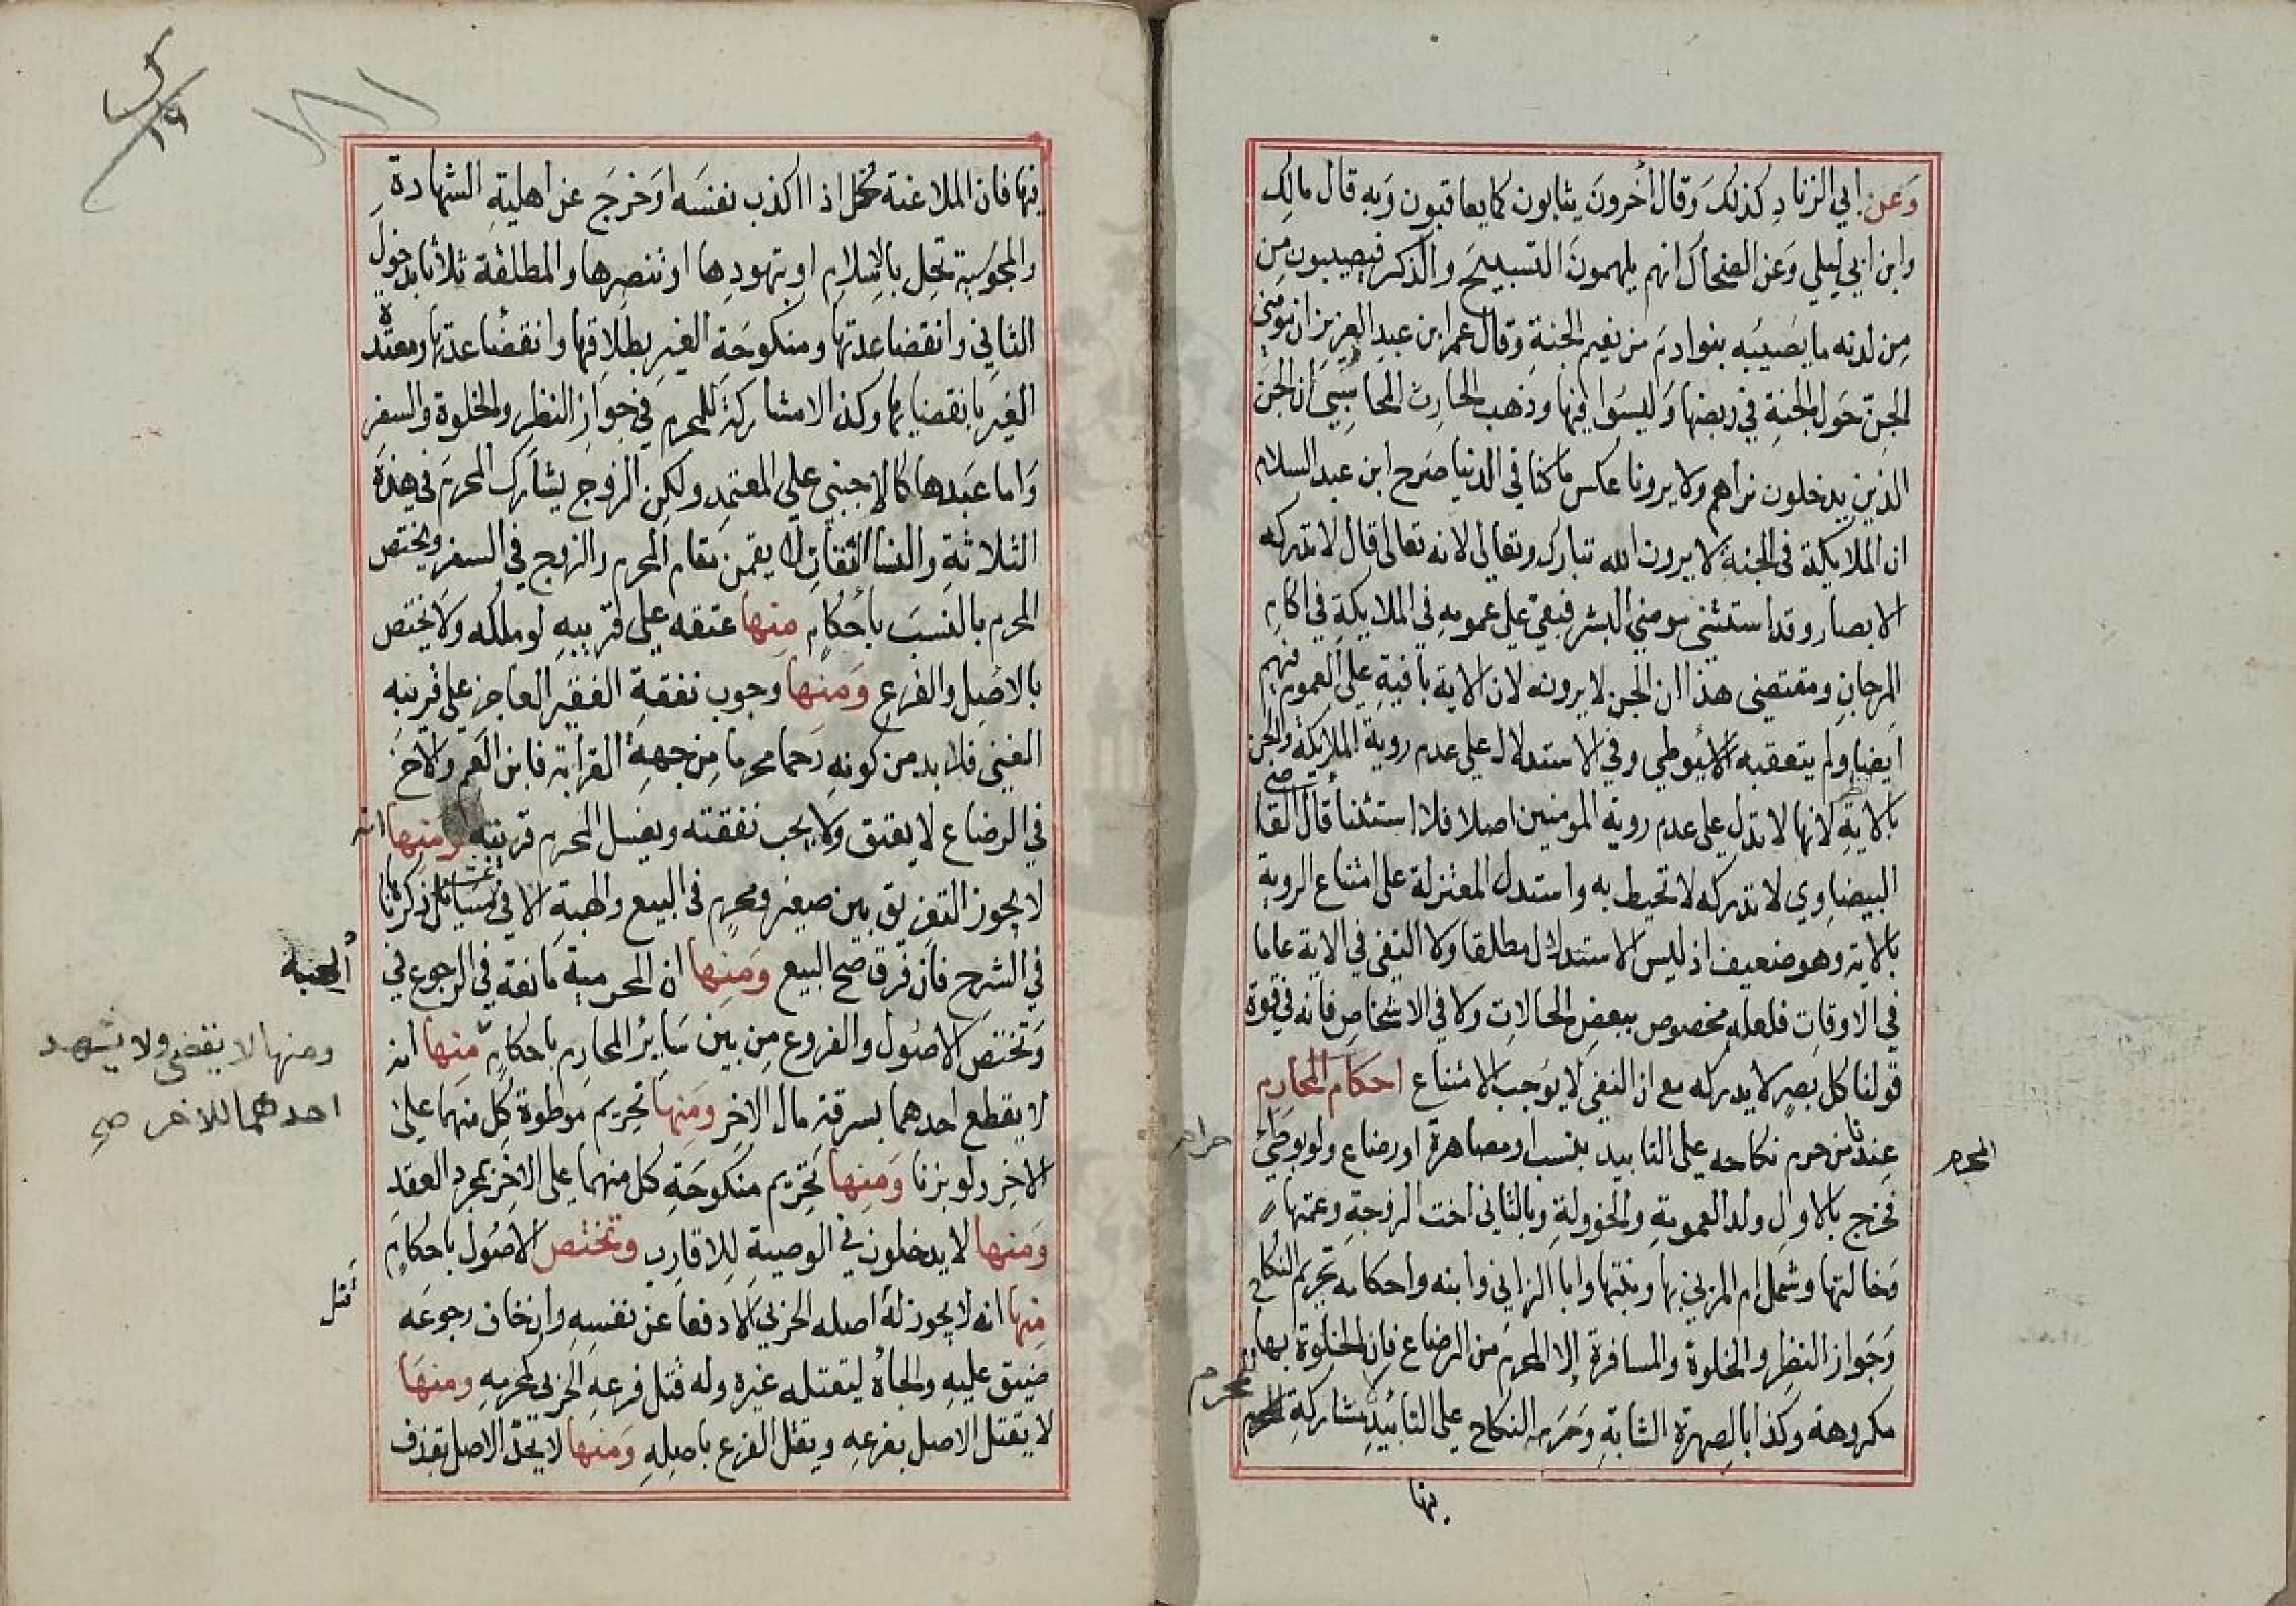 وعن ابي الزناد كذلك وقال آخرون يثابون كما يعاقبون وبه قال مالك
وابن ابي ليلي وعن الضحاك انهم يلهمون التسبيح والذكر فيصيبون من
من لذته ما يصيبه بنوادم من نعيم الجنة وقال عمر ابن عبد العزيز ان مومني
الجن حول الجنة في ربضها وليسوا فيها وذهب الحارث المحاسبي أن الجن
الذين يدخلون نراهم ولا يرونا عكس ما كنا في الدنيا صرح ابن عبد السلام
ان الملايكة في الجنة لا يرون الله تبارك وتعالى لانه تعالى قال لا تدركه
الابصار وقد استثنى مومني البشر فبقي على عمومه في الملايكة في اكام
المرجان ومقتضى هذا ان الجن لا يرونه لان الاية باقية على العموم فيهم
ايضا ولم يتعقبه الاسيوطي وفي الاستدلال على عدم روية الملايكة والجن
بالاية لانها لا تدل على عدم روية المومنين اصلا فلا استثنأ قال القا
البيضاوي لا تدركه لا تحيط به واستدل المعتزلة على امتناع الروية
بالاية وهو ضعيف اذ ليس الاستدلال مطلقا ولا النفي في الاية عاما
في الاوقات فلعله مخصوص ببعض الحالات ولا في الاشخاص فانه في قوة
قولنا كل بصر لا يدركه مع ان النفي لا يوجب الامتناع احكام المحارم
عندنا من حرم نكاحه على التابيد بنسب او مصاهرة او رضاع ولو بوطئ
حرام
المحرم
فخرج بالاول ولد العمومة والخوولة وبالثاني اخت الزوجة وعمتها
وخالتها وشمل ام المزني بها وبنتها وابا الزاني وابنه واحكامه تحريم النكاح
وجواز النظر والخلوة والمسافرة إلا المحرم من الرضاع فان الخلوة بها
مكروهة وكذا بالصهرة الشابة وحرمة النكاح على التابيد لا مشاركة للمحرم
للمحرم
فيها
فيها فان الملاعنة تحل اذا اكذب نفسه او خرج عن اهلية الشهادة
والمجوسية تحل بالاسلام او بتهودها او تنصرها والمطلقة ثلاثا بدخول
الثاني وانقضا عدتها ومنكوحة الغير بطلاقها وانقضا عدتها ومعتدة
الغير بانقضايها وكذا لا مشاركة للمحرم في جواز النظر والخلوة والسفر
واما عبدها كالاجنبي على المعتمد ولكن الزوج يشارك المحرم في هذه
الثلاثة والنسا الثقات لا يقمن مقام المحرم والزوج في السفر ويختص
المحرم بالنسب بأحكام منها عتقه على قريبه لو ملكه ولا يختص
بالاصل والفرع ومنها وجوب نفقة الفقير العاجز على قريبه
الغني فلا بد من كونه رحما محرما من جهة القرابة فابن العم والاخ
في الرضاع لا يعتق ولا يجب نفقته ويغسل المحرم قريبته ومنها انه
لا يجوز التفريق بين صغير ومحرم في البيع والهبة الا في مسايل ذكرناها
في الشرح فان فرق صح البيع ومنها ان المحرمية مانعة في الرجوع في
الهبة
وتختص الاصول والفروع من بين ساير المحارم باحكام منها انه
لا يقطع احدهما بسرقة مال الاخر ومنها تحريم موطوة كل منهما على
ومنها لا يقضي ولا يشهد
احدهما للاخر صح
الاخر ولو بزنا ومنها تحريم منكوحة كل منهما على الاخر بمجرد العقد
ومنها لا يدخلون في الوصية للاقارب وتختص الاصول باحكام
منها انه لا يجوز له اصله الحربي الا دفعا عن نفسه وان خاف رجوعه
قتل
ضيق عليه والجأه ليقتله غيره وله قتل فرعه الحربي كمحرمه ومنها
لا يقتل الاصل بفرعه ويقتل الفرع باصله ومنها لا يحد الاصل بقذف